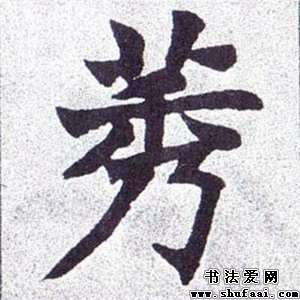 莠
书法爱网
www.shufaai.com